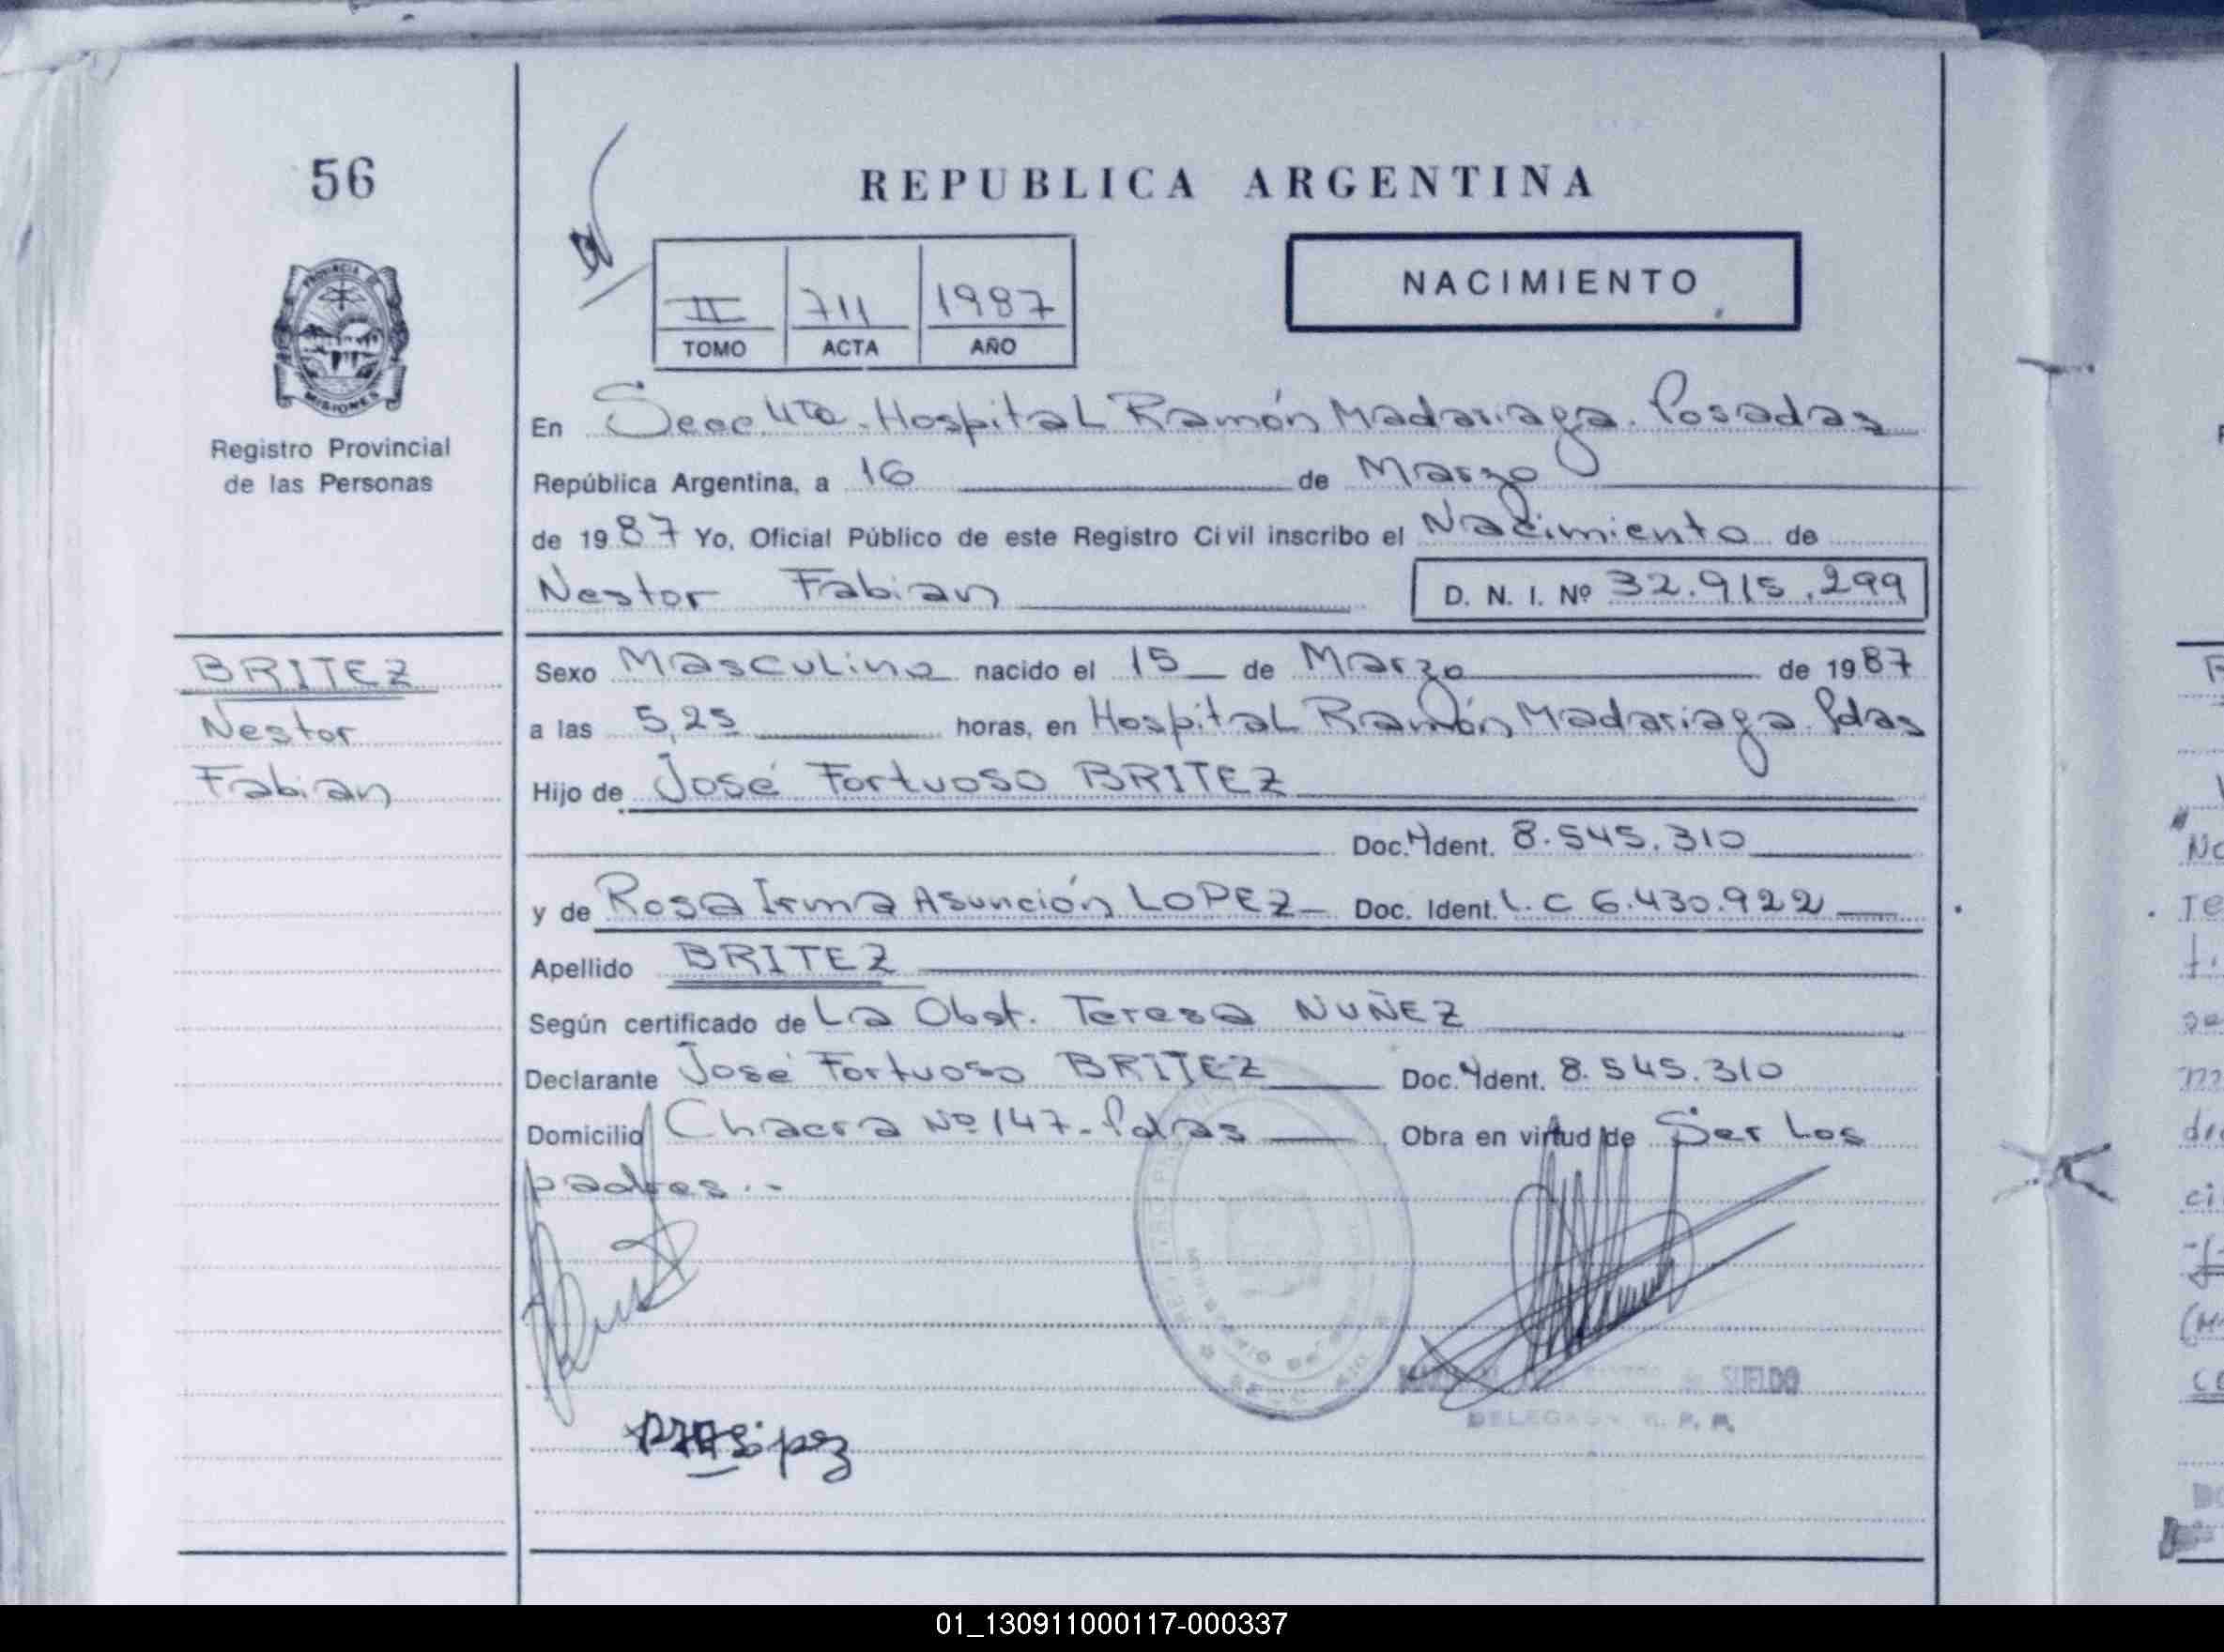 56
REPUBLICA ARGENTINA
PROVINCIA
MISIONES
Registro Provincial
de las Personas
NACIMIENTO
II 711 1987
TOMO ACTA AÑO
En Secc. 4ta. Hospital Ramón Madariaga. Posadas
República Argentina, a 16 de Marzo
de 1987 Yo, Oficial Público de este Registro Civil inscribo el Nacimiento de
Nestor Fabian D. N. I. Nº 32.915.299
BRITEZ
Nestor
Fabian
Sexo Masculino nacido el 15 de Marzo de 1987
a las 5,25 horas, en Hospital Ramón Madariaga. Pdas
Hijo de José Fortuoso BRITEZ
Doc. Ident. 8.545.310
y de Rosa Irma Asunción LOPEZ Doc. Ident. L.C 6.430.922
Apellido BRITEZ
Según certificado de La Obst. Teresa NUÑEZ
Declarante José Fortuoso BRITEZ Doc. Ident. 8.545.310
Domicilio Chacra Nº 147 - Pdas Obra en virtud de Ser Los
padres..-
SUELDO
R. P. P.
01_130911000117-000337